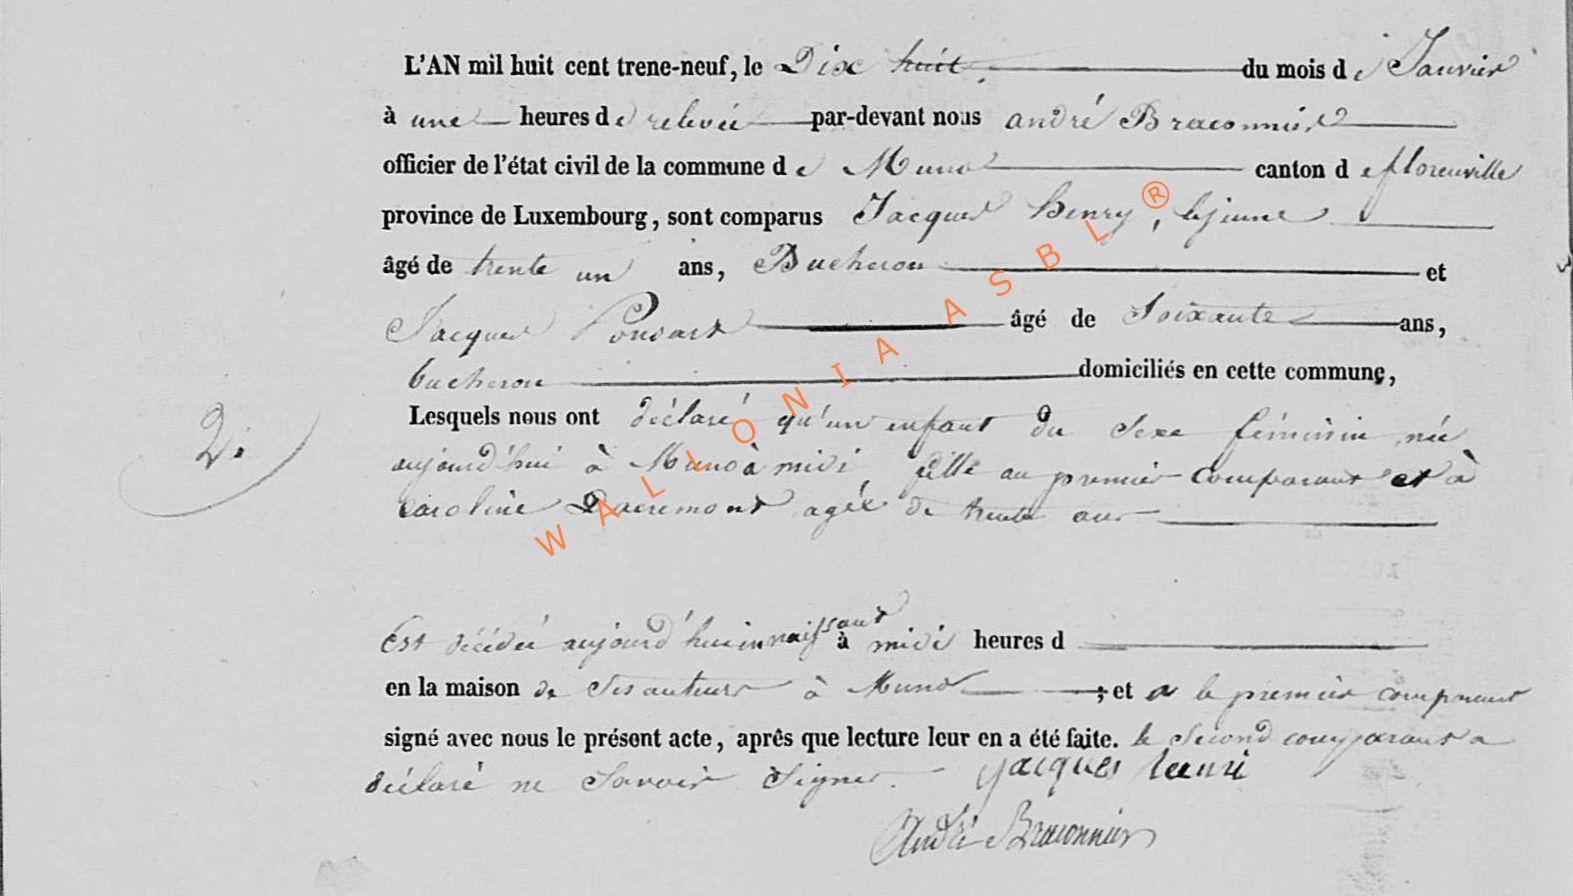 L'AN mil huit cent trene-neuf, le Dix huit du mois de Janvier
à une heures de relevée par-devant nous andré Braconnier
officier de l'état civil de la commune de Muno canton de florenville
province de Luxembourg, sont comparus Jacques henry, lejeune
âgé de trente un ans, Bucheron et
Jacques Ponsart âgé de Soixante ans,
bucheron domiciliés en cette commune,
Lesquels nous ont déclaré qu'un enfant du Sexe féminin née
2.
aujourd'hui à Muno à midi fille au premier comparant et à
Caroline Dacremont agée de trente ans
Est décédée aujourd'hui en naissant à midi heures d
en la maison de Ses auteurs à Muno ; et a le premier comparant
signé avec nous le présent acte, après que lecture leur en a été faite. le Second comparant a
déclaré ne Savoir Signer. Jacques henri
André Braconnier
WALLONIA ASBL ®